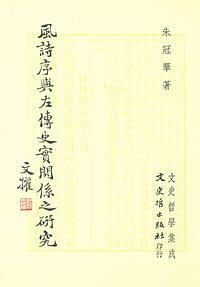 朱冠華著
風詩序與左傳史實關係之研究
文擢
文史哲學集成
文史哲出版社印行